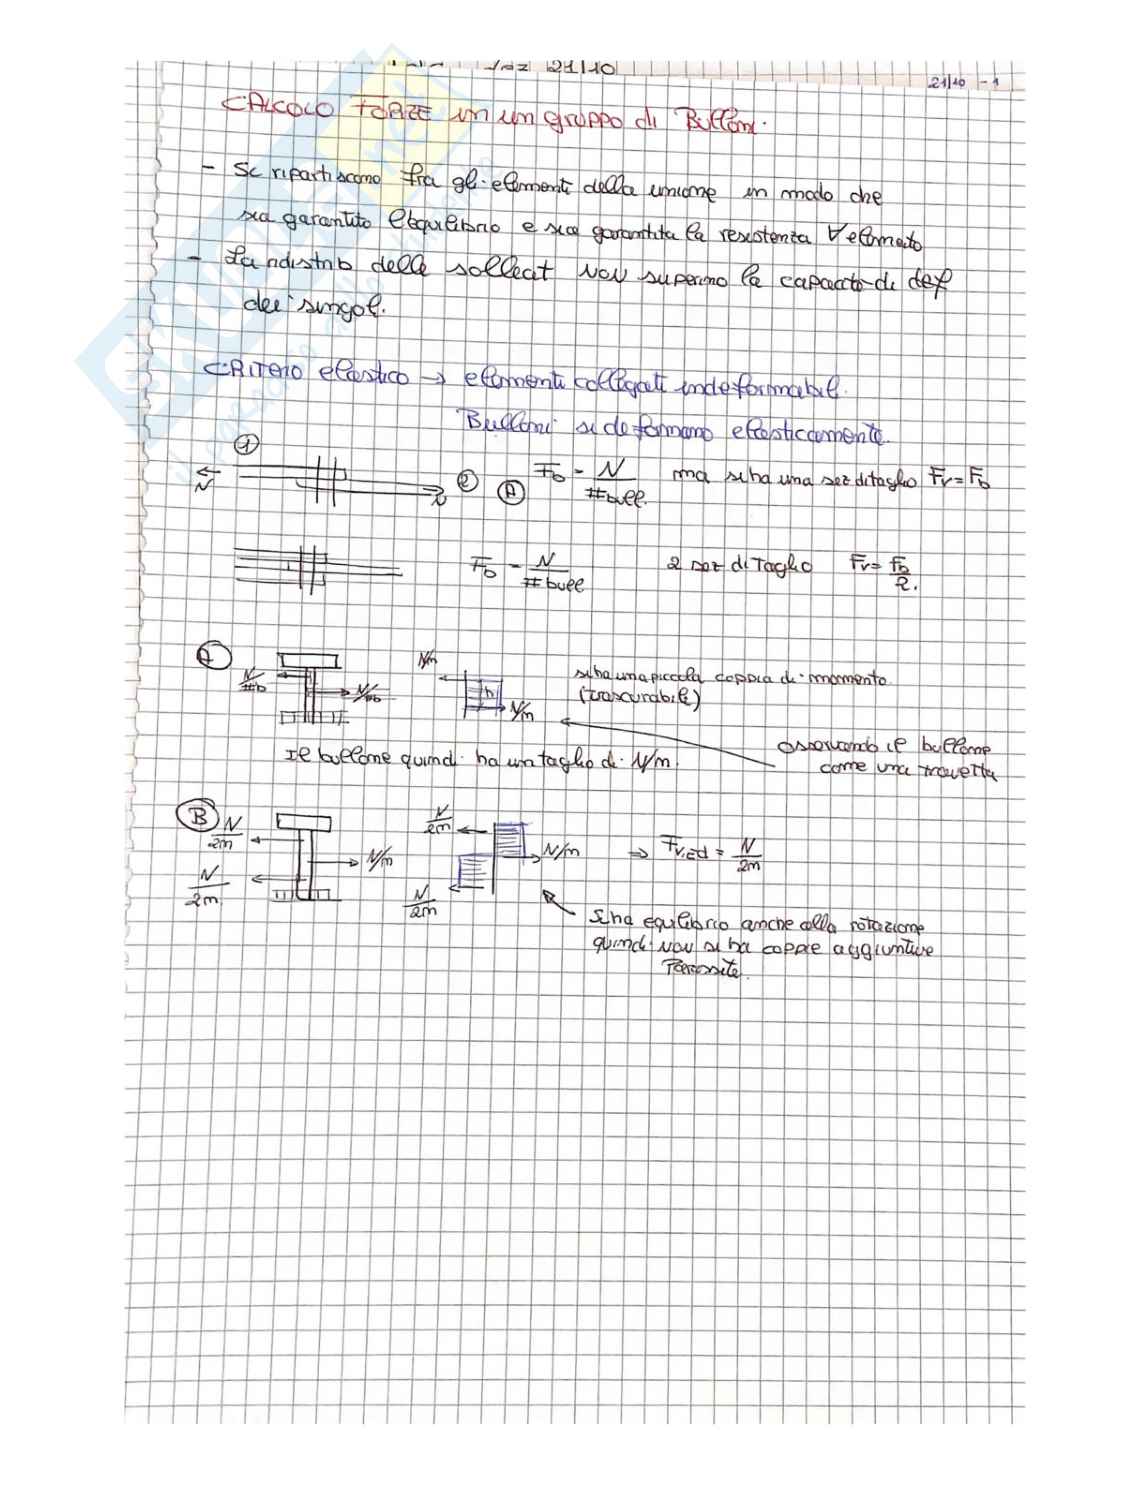 21/10
21/10 - 1
CALCOLO FORZE in un gruppo di Bulloni.
- Si ripartiscono fra gli elementi della unione in modo che
sia garantito l'equilibrio e sia garantita la resistenza ∀ elemento
- La ridistrib delle sollecit NON superino la capacità di def
dei singoli.
CRITERIO elastico → elementi collegati indeformabili.
Bulloni si deformano elasticamente.
1
N
2
N
A
Fb = N/#bull. ma si ha una sez di taglio Fv = Fb
Fb = N/#bull 2 sez di Taglio Fv = Fb/2.
A
N/#b
N/#b
N/m
h
N/m
si ha una piccola coppia di momento
(trascurabile)
Il bullone quindi ha un taglio di N/m.
osservando il bullone
come una travetta
B
N/2m
N/m
N/2m
N/2m
N/m
N/2m
⇒ Fv,Ed = N/2m
Si ha equilibrio anche alla rotazione
quindi NON si ha coppie aggiuntive
Parassite.